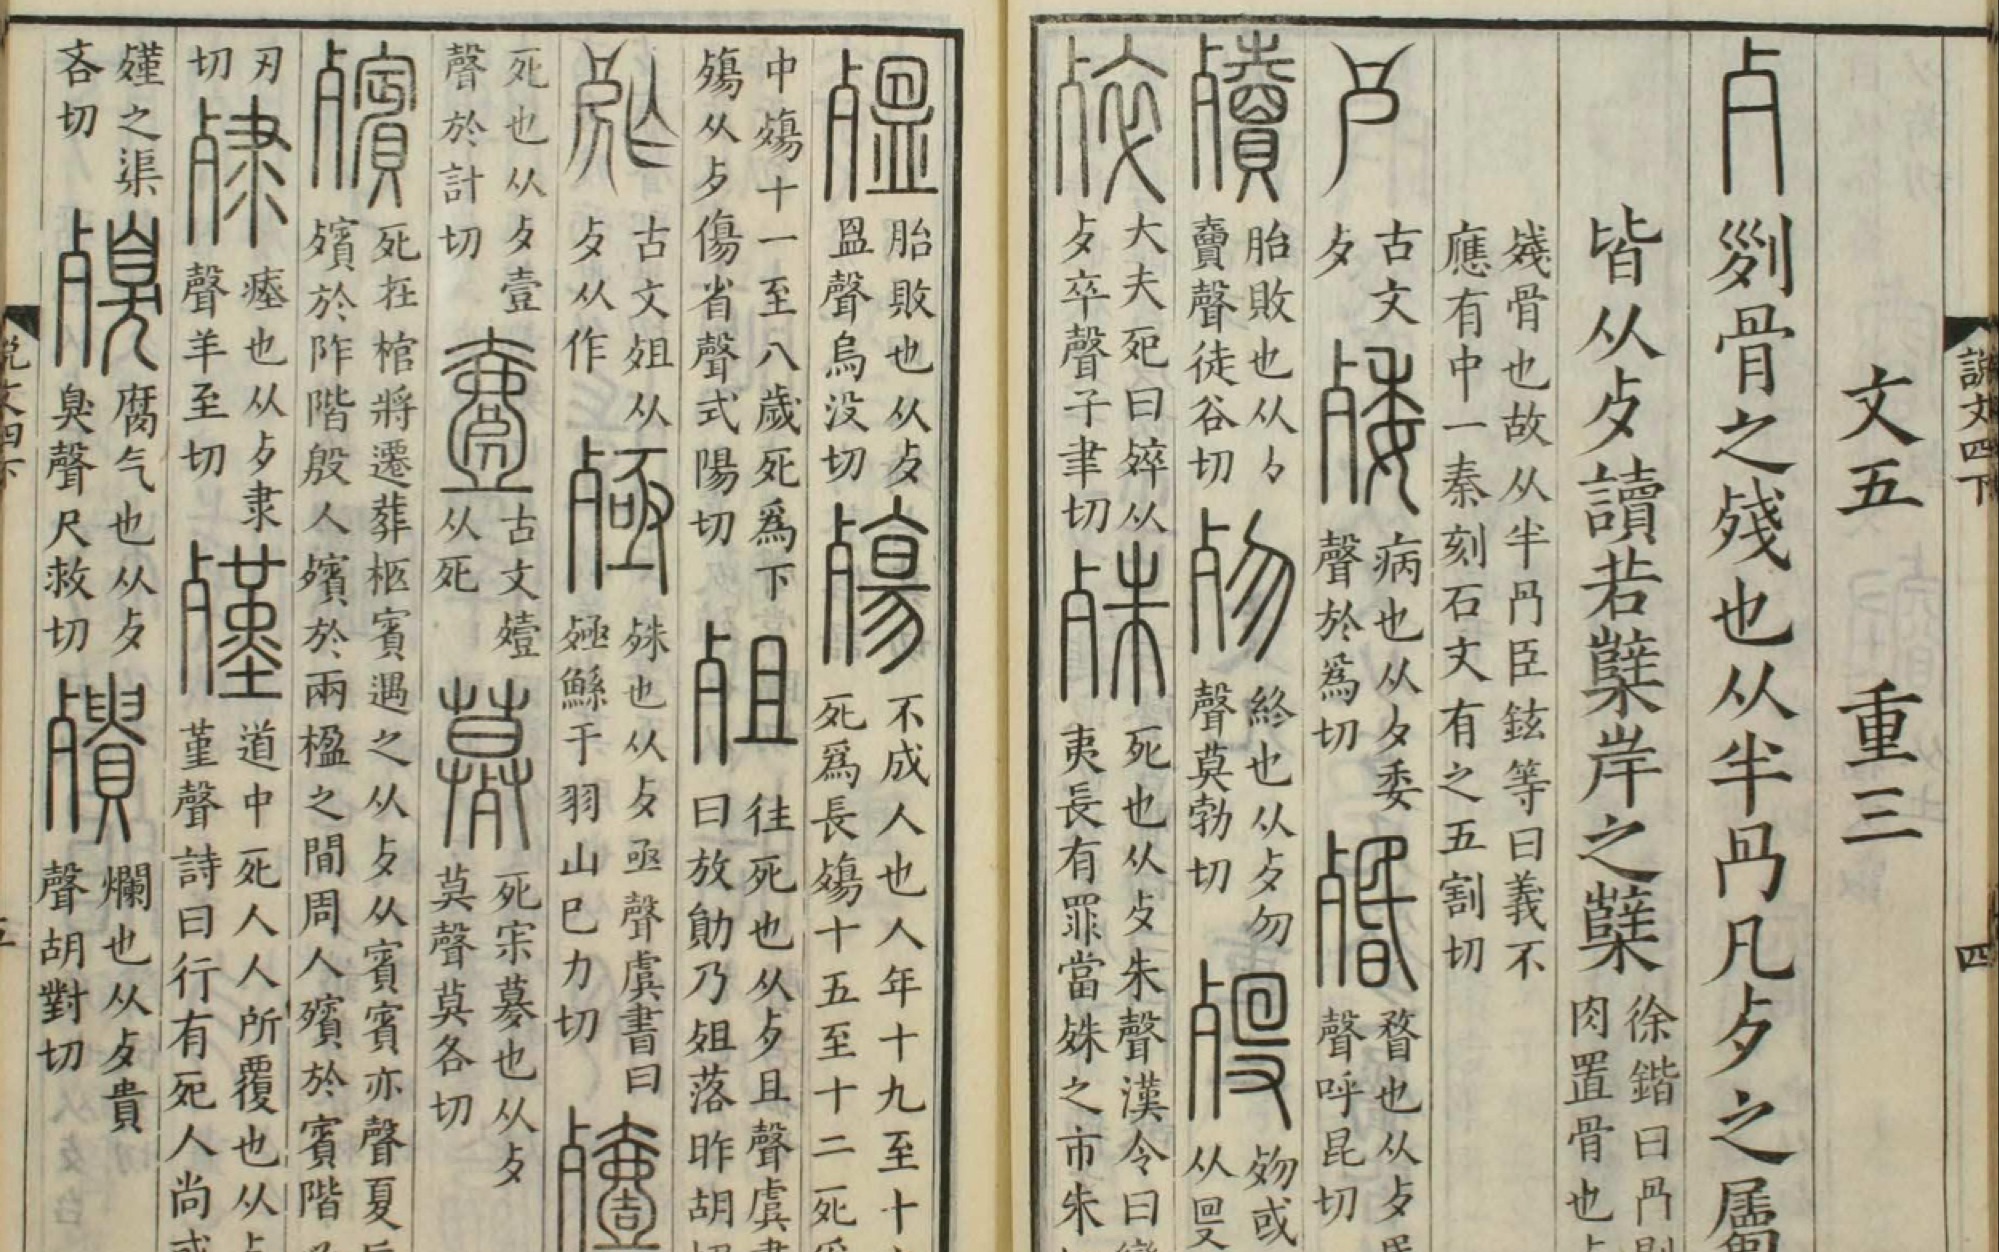 說文四下 四
文五 重三
歺 𠛱骨之殘也从半冎凡歺之屬
皆从歺讀若櫱岸之櫱 徐鍇曰冎剔肉置骨也
殘骨也故从半冎臣鉉等曰義不應有中一秦刻石文有之五割切
𣦵 古文歺 殗 病也从歺委聲於爲切 殙 瞀也从歺昬聲呼昆切
殰 胎敗也从歺賣聲徒谷切 歾 終也从歺勿聲莫勃切 歿 歾或从𠬛
㱖 大夫死曰㱖从歺卒聲子聿切 殊 死也从歺朱聲漢令曰蠻夷長有罪當殊之市朱
殟 胎敗也从歺𥁕聲烏没切 殤 不成人也人年十九至十六死爲長殤十五至十二死爲
中殤十一至八歲死爲下殤从歺傷省聲式陽切 殂 往死也从歺且聲虞書曰放勛乃殂落昨胡切
古文殂从歺从作 殛 殊也从歺亟聲虞書曰殛鯀于羽山巳力切 殪
死也从歺壹聲於計切 古文殪从死 㱳 死宗募也从歺莫聲莫各切
殯 死在棺將遷葬柩賓遇之从歺从賓賓亦聲夏后殯於阼階殷人殯於兩楹之間周人殯於賓階
刃切 殔 瘞也从歺隶聲羊至切 殣 道中死人人所覆也从歺堇聲詩曰行有死人尚或
殣之渠吝切 殠 腐气也从歺臭聲尺救切 殨 爛也从歺貴聲胡對切
說文四下 五